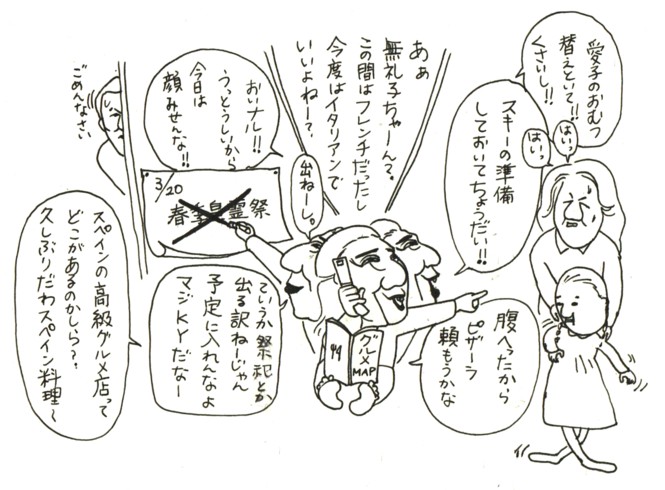 愛子のおむつ
替えといて!!
くさいし!!
はいっ
はいっ
スキーの準備
しておいてちょうだい!!
あぁ
無礼子ちゃーん?
この間はフレンチだったし
今度はイタリアンで
いいよねー?
出ねーし。
おいナル!!
うっとうしいから
今日は
顔みせんな!!
ごめんなさい
3/20
春季皇霊祭
ていうか祭祀とか
出る訳ねーじゃん
予定に入れんなよ
マジKYだなー
スペインの高級グルメ店って
どこがあるのかしら?
久しぶりだわスペイン料理〜
腹へったから
ピザーラ
頼もうかな
グルメ
MAP